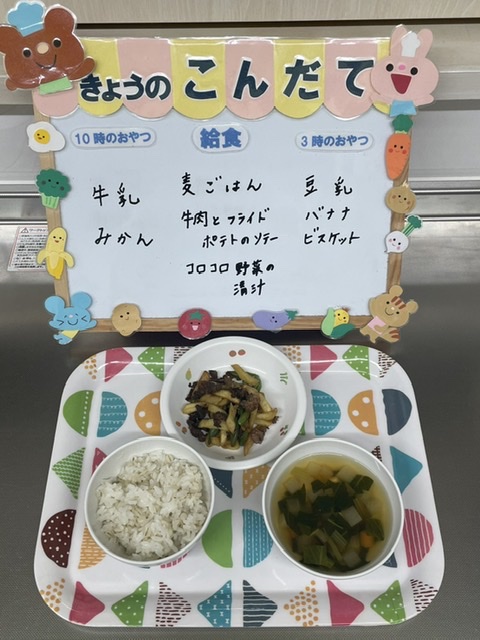 きょうの こんだて
10時のおやつ
牛乳
みかん
給食
麦ごはん
牛肉とフライド
ポテトのソテー
コロコロ野菜の
清汁
3時のおやつ
豆乳
バナナ
ビスケット